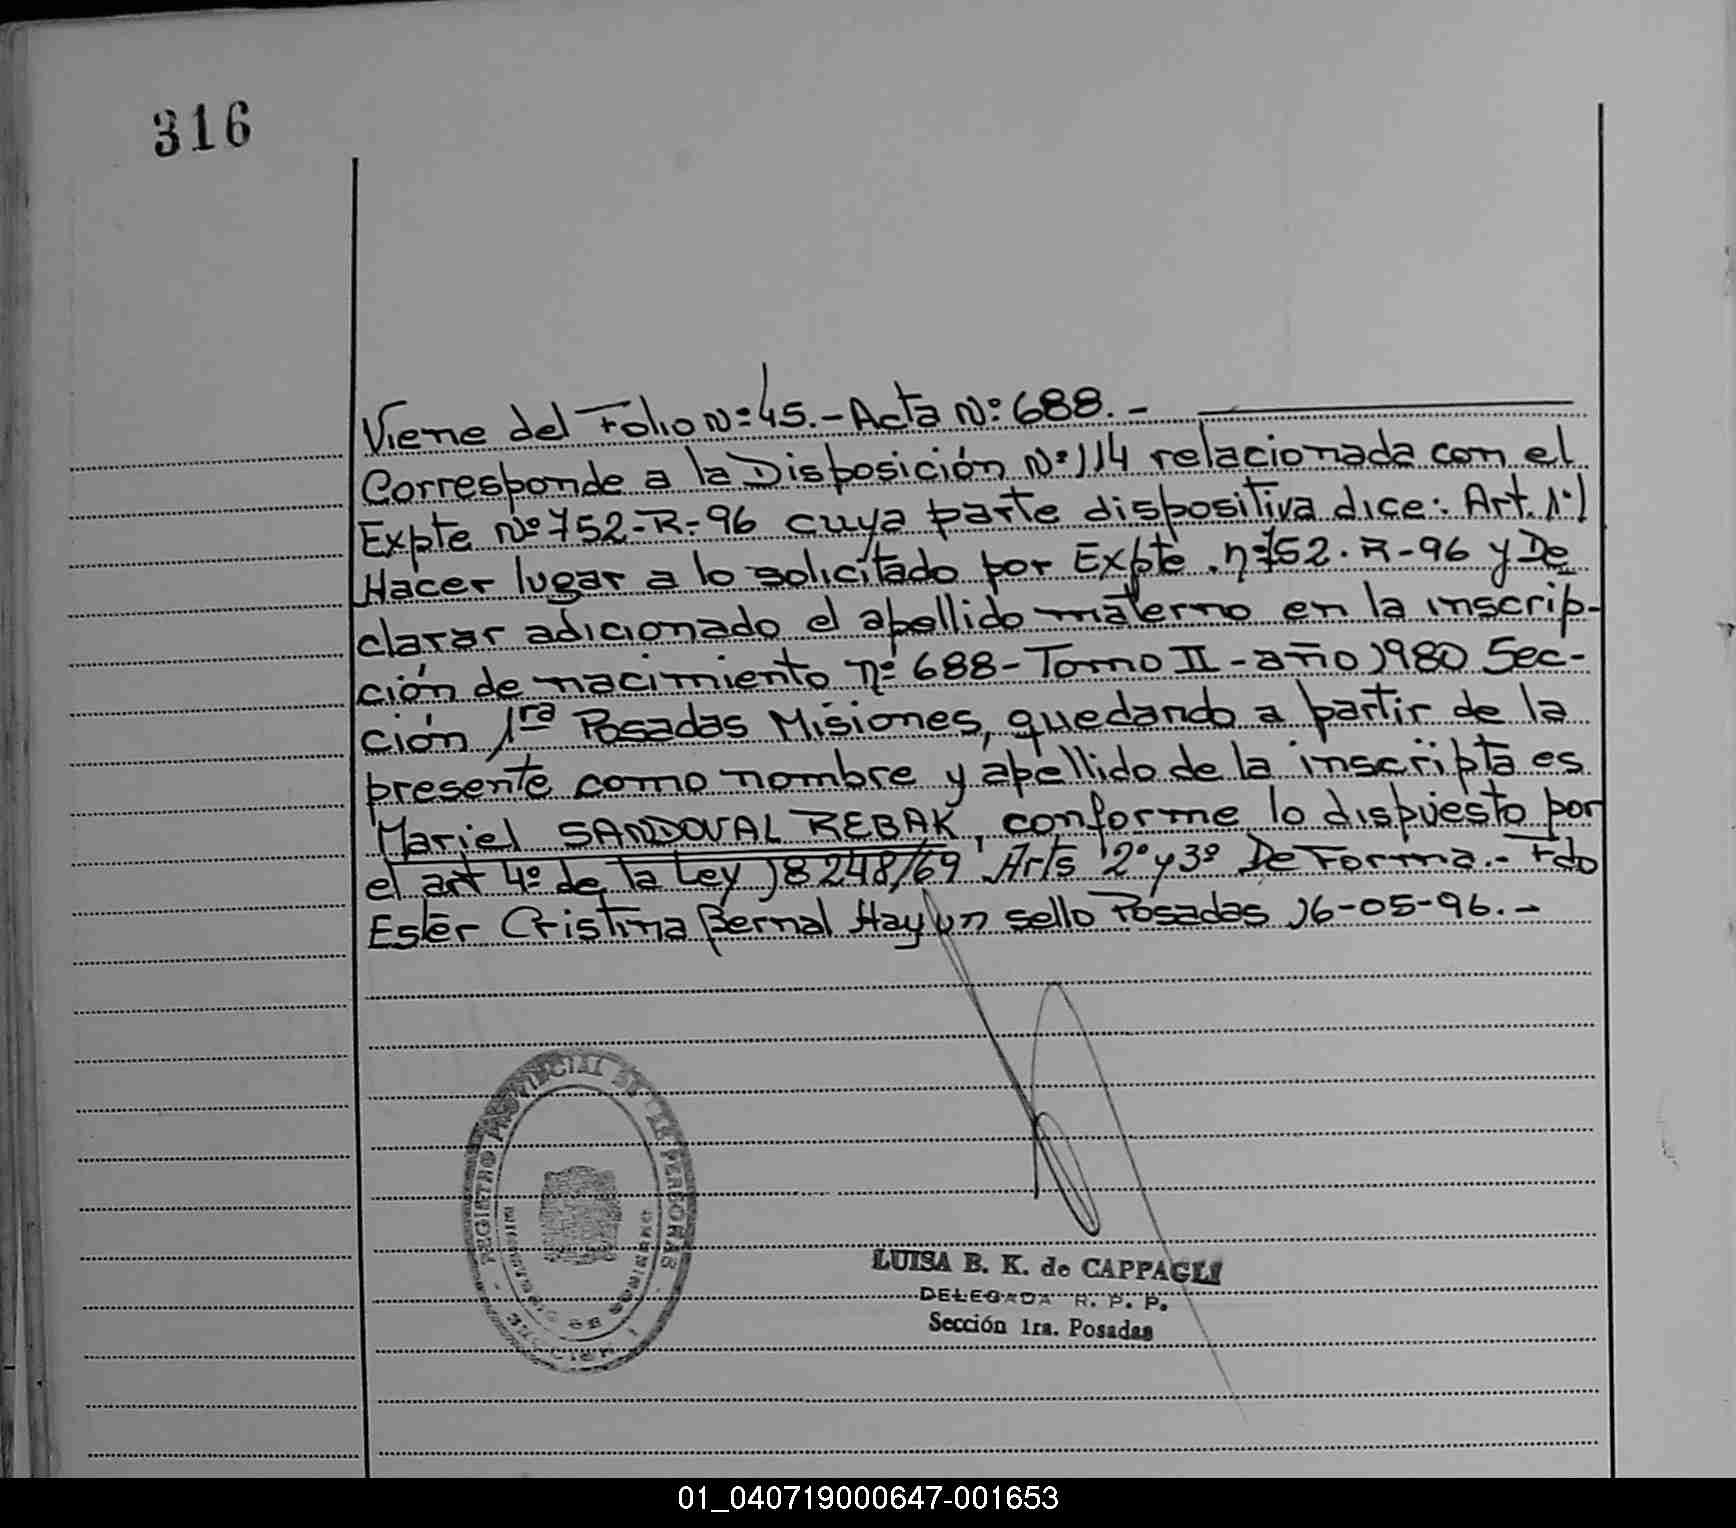 316
Viene del Folio Nº 45.- Acta Nº 688.-
Corresponde a la Disposición Nº 114 relacionada con el
Expte Nº 752-R-96 cuya parte dispositiva dice: Art. 1º)
Hacer lugar a lo solicitado por Expte. nº 752.R-96 y De
clarar adicionado el apellido materno en la inscrip-
ción de nacimiento nº 688-Tomo II-año 1980 Sec-
ción 1ra Posadas Misiones, quedando a partir de la
presente como nombre y apellido de la inscripta es
Mariel SANDOVAL REBAK, conforme lo dispuesto por
el art 4º de la Ley 18248/69 Arts 2º y 3º De Forma.- Fdo
Ester Cristina Bernal Hay un sello Posadas 16-05-96.-
REGISTRO PROVINCIAL DE PERSONAS
LUISA B. K. de CAPPAGLI
DELEGADA R. P. P.
Sección 1ra. Posadas
01_040719000647-001653